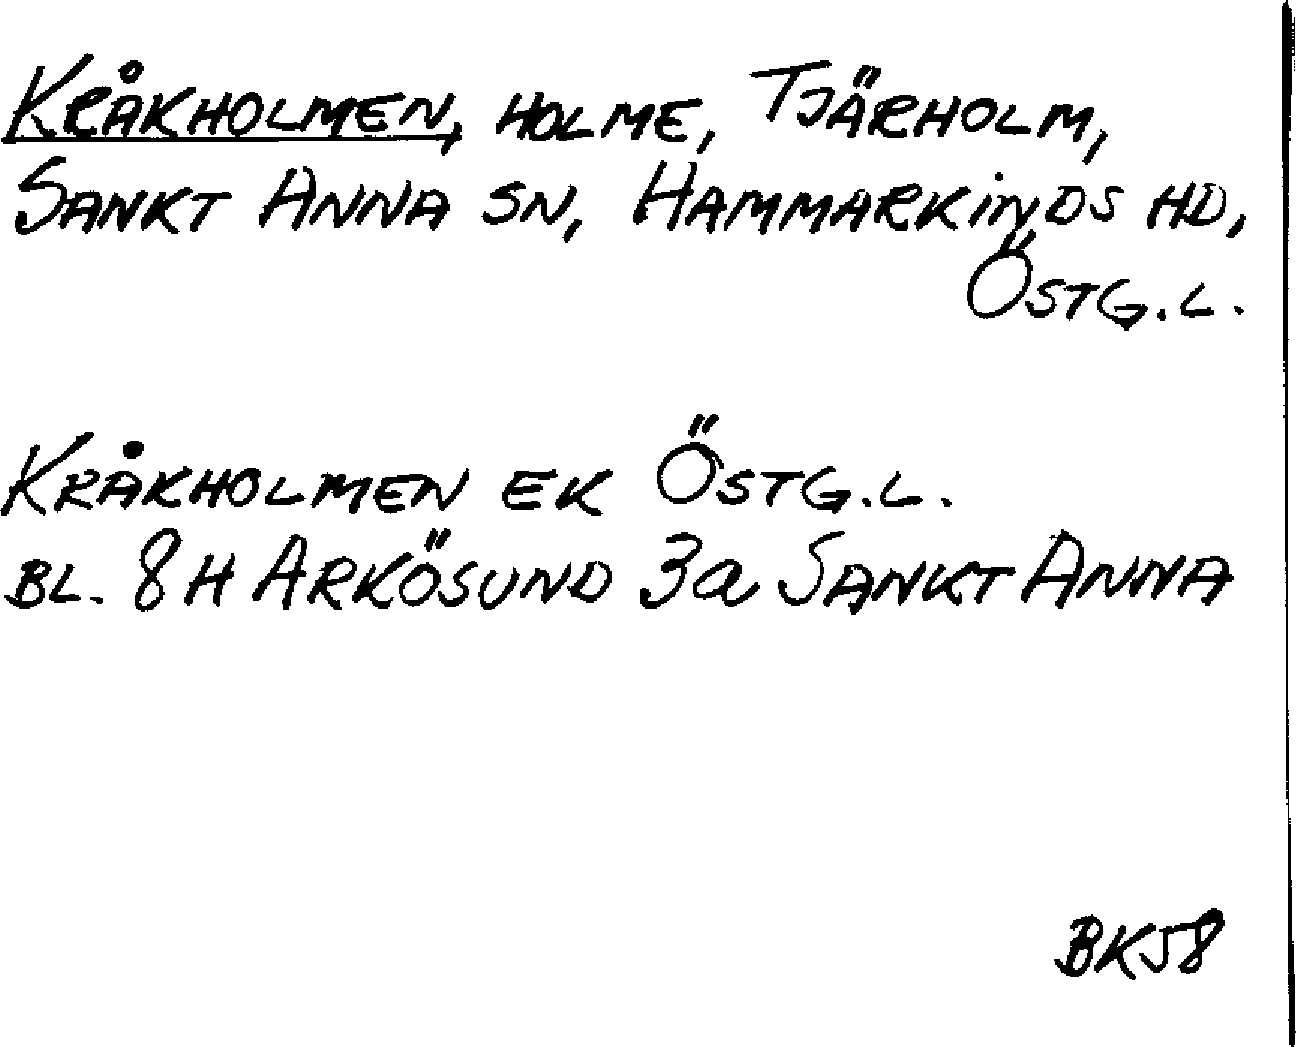 KRÅKHOLMEN, HOLME, TJÄRHOLM,
SANKT ANNA SN, HAMMARKINDS HD,
ÖSTG.L.
KRÅKHOLMEN EK ÖSTG.L.
BL. 8 H ARKÖSUND 3a SANKT ANNA
BK58